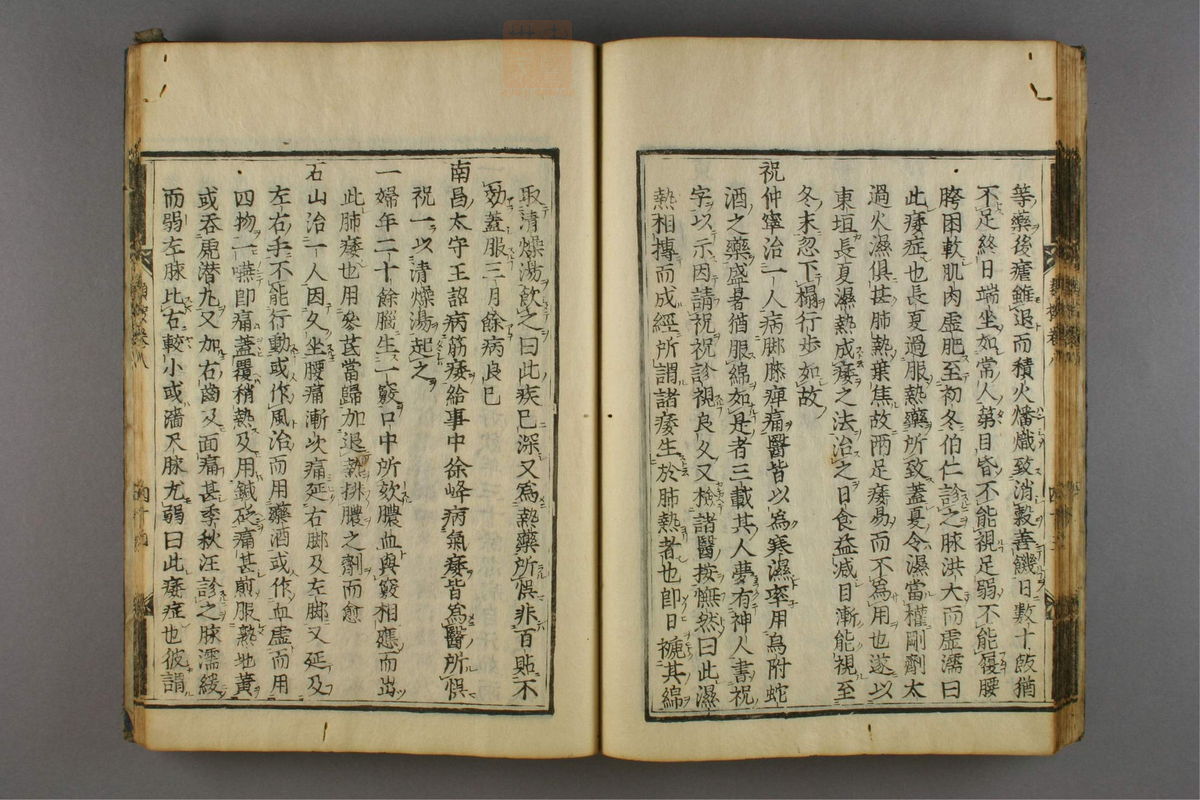 等藥後瘧雖退而積火燔熾致消穀善饑日數十飯猶
不足終日端坐如常人第目昏不能視足弱不能履腰
胯困軟肌肉虛肥至初冬伯仁診之脉洪大而虛濡曰
此痿症也長夏過服熱藥所致蓋夏令濕當權剛劑太
過火濕俱甚肺熱葉焦故兩足痿易而不為用也遂以
東垣長夏濕熱成痿之法治之日食益減目漸能視至
冬末忽下榻行步如故
祝仲寧治一人病脚膝痺痛醫皆以為寒濕率用烏附蛇
酒之藥盛暑猶服綿如是者三載其人夢有神人書祝
字以示因請祝祝診視良久又檢諸醫按憮然曰此濕
熱相搏而成經所謂諸痿生於肺熱者也即日褫其綿
取清燥湯飲之曰此疾已深又為熱藥所悞非百貼不
効蓋服三月餘病良已
南昌太守王詔病筋痿給事中徐峰病氣痿皆為醫所悞
祝一以清燥湯起之
一婦年二十餘腦生一竅口中所欬膿血與竅相應而出
此肺痿也用參芪當歸加退熱排膿之劑而愈
石山治一人因久坐腰痛漸次痛延右脚及左脚又延及
左右手不能行動或作風治而用藥酒或作血虛而用
四物一嚥即痛蓋覆稍熱及用鍼砭痛甚煎服熟地黃
或吞虎潛丸又加右齒及面痛甚季秋汪診之脉濡緩
而弱左脉比右較小或濇尺脉尤弱曰此痿症也彼謂
卷八